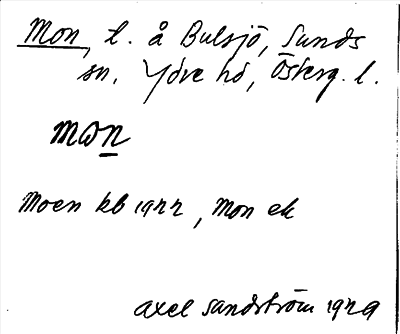 Mon, t. å Bulsjö, Sunds
sn. Ydre hd, Österg. l.
mon
Moen kb 1922, Mon ek
Axel Sandström 1929